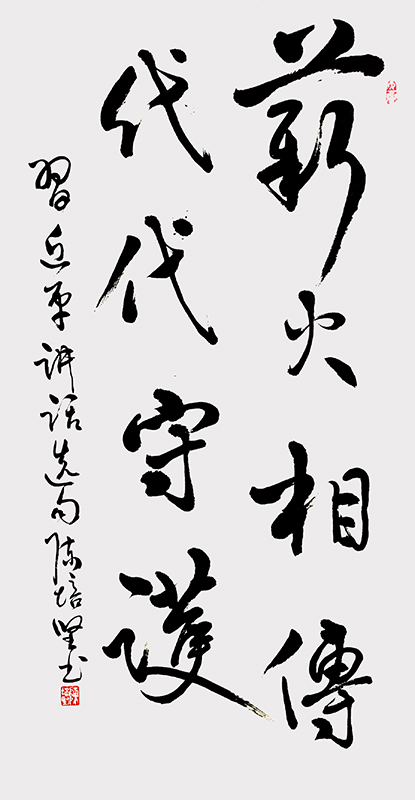 薪火相傳
代代守護
習近平講話選句陈培坚书